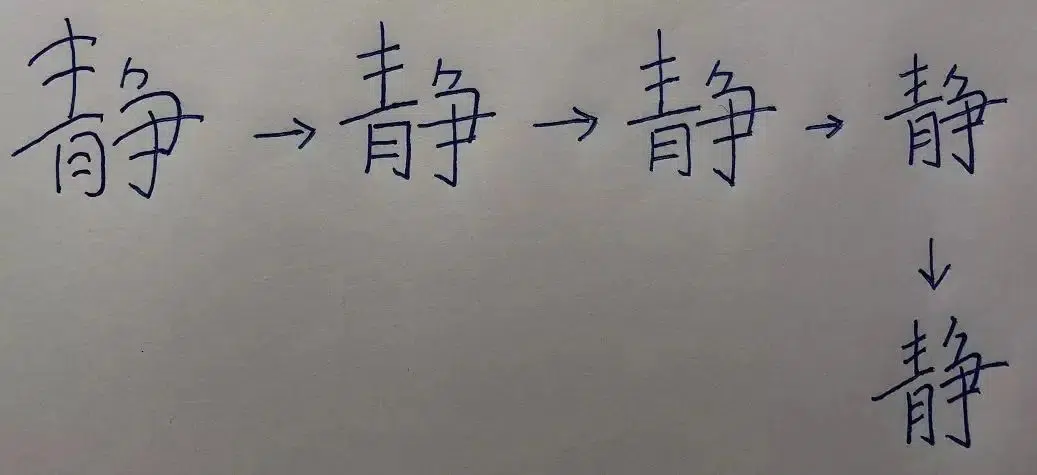 静 → 静 → 静 → 静
↓
静